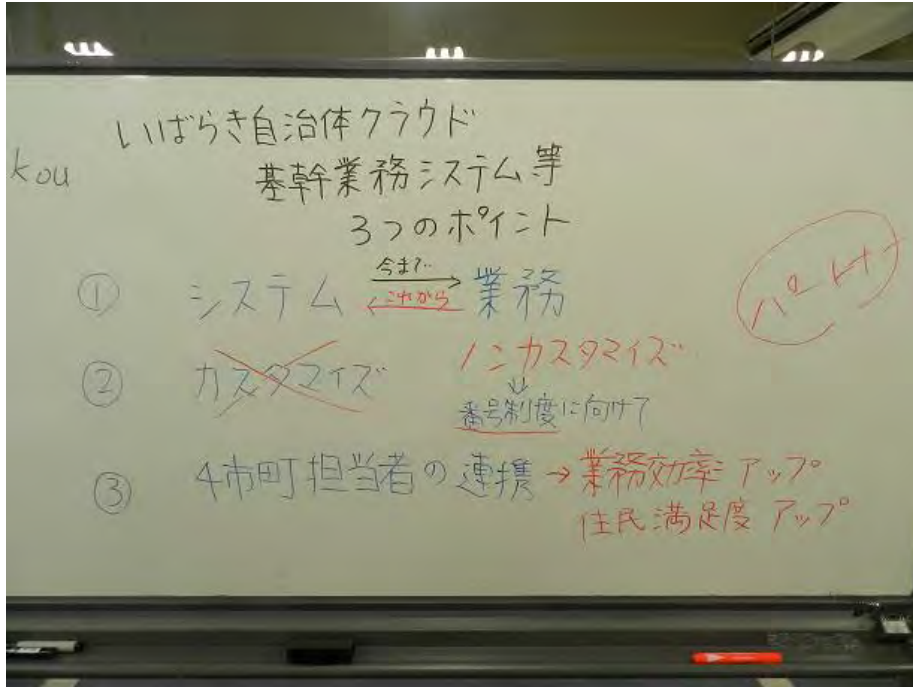 いばらき自治体クラウド
kou
基幹業務システム等
3つのポイント
① システム 今まで‥ → ← これから 業務
パートナー
② カスタマイズ ノンカスタマイズ
⇓
番号制度に向けて
③ 4市町担当者の連携 → 業務効率アップ
住民満足度アップ